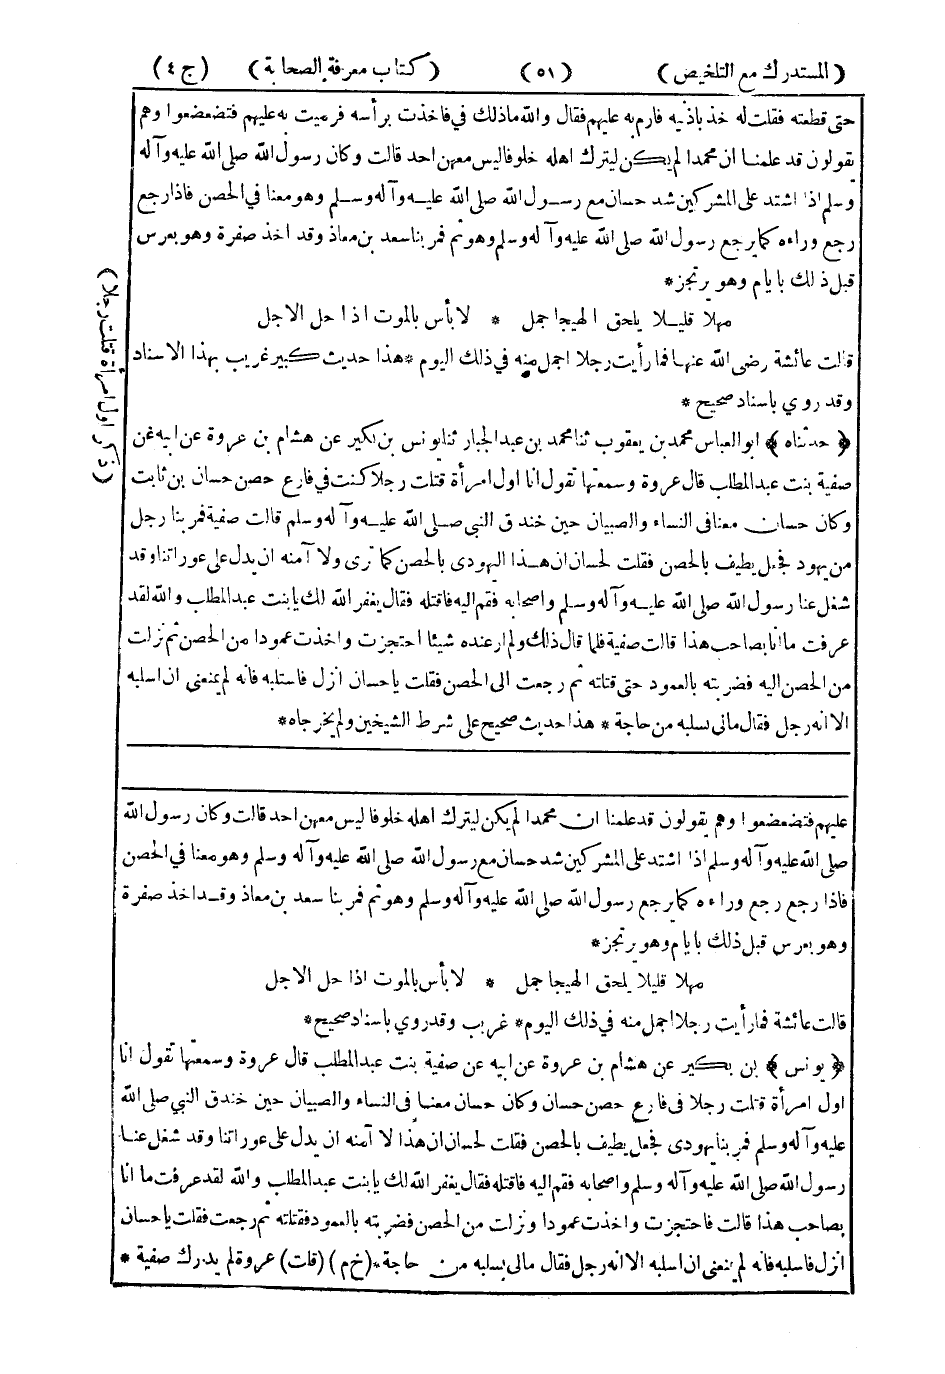 (المستدرك مع التلخيص) (٥١) (كتاب معرفة الصحابة) (ج ٤)
حتى قطعته فقلت له خذ باذنيه فارم به عليهم فقال والله ما ذلك في فاخذت برأسه فرميت به عليهم فتضعضعوا وهم
يقولون قد علمنا ان محمدا لم يكن ليترك اهله خلوفا ليس معهن احد قالت وكان رسول الله صلى الله عليه وآله
وسلم اذا اشتد على المشركين شد حسان مع رسول الله صلى الله عليه وآله وسلم وهو معنا في الحصن فاذا رجع
رجع وراءه كما يرجع رسول الله صلى الله عليه وآله وسلم وهو ثم فمر بنا سعد بن معاذ وقد اخذ صفرة وهو بعرس
قبل ذلك بايام وهو يرتجز *
مهلا قليلا يلحق الهيجا جمل * لا بأس بالموت اذا حل الاجل
قالت عائشة رضى الله عنها فما رأيت رجلا اجمل منه في ذلك اليوم * هذا حديث كبير غريب بهذا الاسناد
وقد روي باسناد صحيح *
﴿ حدثناه ﴾ ابو العباس محمد بن يعقوب ثنا محمد بن عبد الجبار ثنا يونس بن بكير عن هشام بن عروة عن ابيه عن
صفية بنت عبد المطلب قال عروة وسمعتها تقول انا اول امرأة قتلت رجلا كنت في فارع حصن حسان بن ثابت
وكان حسان معنا في النساء والصبيان حين خندق النبي صلى الله عليه وآله وسلم قالت صفية فمر بنا رجل
من يهود فجعل يطيف بالحصن فقلت لحسان ان هذا اليهودى بالحصن كما ترى ولا آمنه ان يدل على عوراتنا وقد
شغل عنا رسول الله صلى الله عليه وآله وسلم واصحابه فقم اليه فاقتله فقال يغفر الله لك يا بنت عبد المطلب والله لقد
عرفت ما انا بصاحب هذا قالت صفية فلما قال ذلك ولم ار عنده شيئا احتجزت واخذت عمودا من الحصن ثم نزلت
من الحصن اليه فضربته بالعمود حتى قتلته ثم رجعت الى الحصن فقلت يا حسان انزل فاستلبه فانه لم يمنعنى ان اسلبه
الا انه رجل فقال مالى بسلبه من حاجة * هذا حديث صحيح على شرط الشيخين ولم يخرجاه *
(ذكر اول امرأة قتلت رجلا)
عليهم فتضعضعوا وهم يقولون قد علمنا ان محمدا لم يكن ليترك اهله خلوفا ليس معهن احد قالت وكان رسول الله
صلى الله عليه وآله وسلم اذا اشتد على المشركين شد حسان مع رسول الله صلى الله عليه وآله وسلم وهو معنا في الحصن
فاذا رجع رجع وراءه كما يرجع رسول الله صلى الله عليه وآله وسلم وهو ثم فمر بنا سعد بن معاذ وقد اخذ صفرة
وهو بعرس قبل ذلك بايام وهو يرتجز *
مهلا قليلا يلحق الهيجا جمل * لا بأس بالموت اذا حل الاجل
قالت عائشة فما رأيت رجلا اجمل منه في ذلك اليوم * غريب وقد روي باسناد صحيح *
﴿ يونس ﴾ بن بكير عن هشام بن عروة عن ابيه عن صفية بنت عبد المطلب قال عروة وسمعتها تقول انا
اول امرأة قتلت رجلا في فارع حصن حسان وكان حسان معنا في النساء والصبيان حين خندق النبي صلى الله
عليه وآله وسلم فمر بنا يهودى فجعل يطيف بالحصن فقلت لحسان ان هذا لا آمنه ان يدل على عوراتنا وقد شغل عنا
رسول الله صلى الله عليه وآله وسلم واصحابه فقم اليه فاقتله فقال يغفر الله لك يا بنت عبد المطلب والله لقد عرفت ما انا
بصاحب هذا قالت فاحتجزت واخذت عمودا ونزلت من الحصن فضربته بالعمود فقتلته ثم رجعت فقلت يا حسان
انزل فاسلبه فانه لم يمنعنى ان اسلبه الا انه رجل فقال مالى بسلبه من حاجة * (خ م) (قلت) عروة لم يدرك صفية *